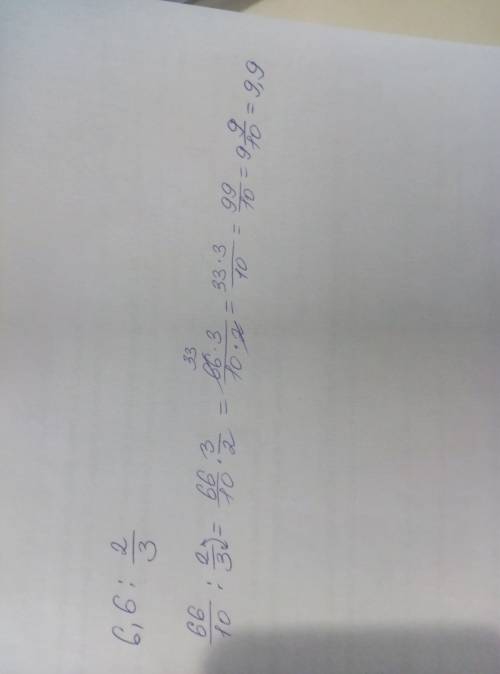 6,6 : 2/3
66/10 : 2/3 = 66/10 · 3/2 = 66 · 3/10 · 2 = 33 · 3/10 = 99/10 = 9 9/10 = 9,9
33